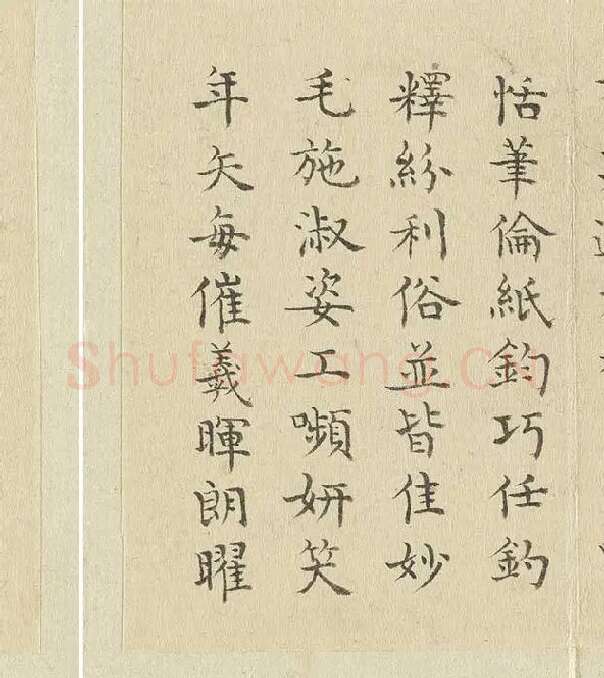 恬筆倫紙鈞巧任釣
釋紛利俗並皆佳妙
毛施淑姿工嚬妍笑
年矢每催羲暉朗曜
Shufawang.CN